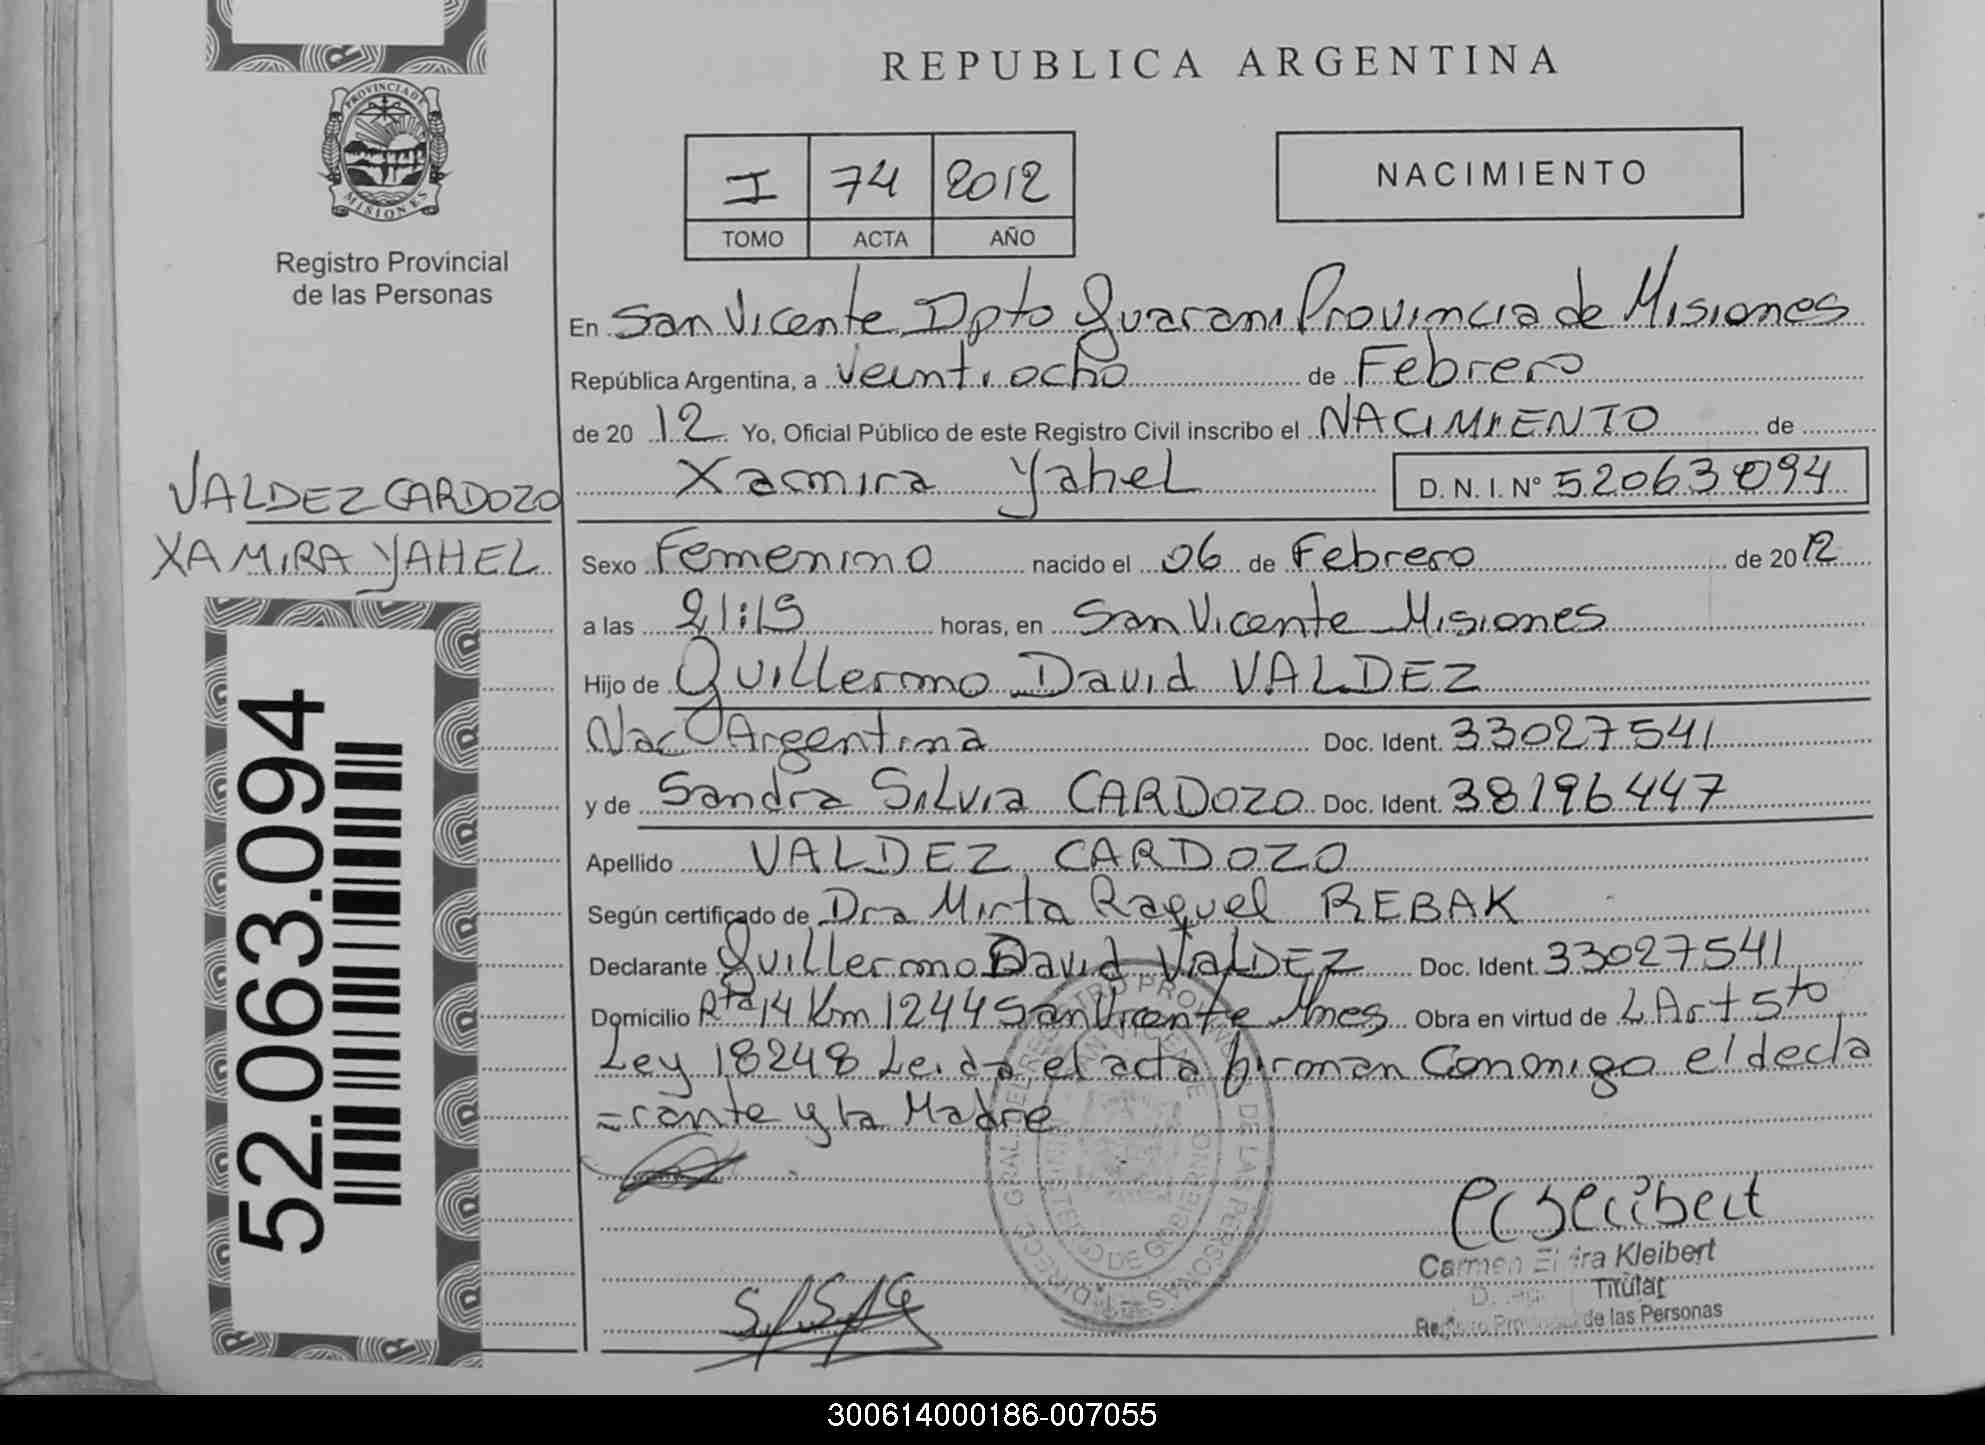 REPUBLICA ARGENTINA
PROVINCIA DE
MISIONES
Registro Provincial
de las Personas
I 74 2012
TOMO ACTA AÑO
NACIMIENTO
En San Vicente Dpto Guarani Provincia de Misiones
República Argentina, a Veintiocho de Febrero
de 2012 Yo, Oficial Público de este Registro Civil inscribo el NACIMIENTO de
Xamira Yahel D. N. I. Nº 52063094
VALDEZ CARDOZO
XAMIRA YAHEL
52.063.094
Sexo Femenino nacido el 06 de Febrero de 2012
a las 21:15 horas, en San Vicente Misiones
Hijo de Guillermo David VALDEZ
Nac Argentina Doc. Ident. 33027541
y de Sandra Silvia CARDOZO Doc. Ident. 38196447
Apellido VALDEZ CARDOZO
Según certificado de Dra Mirta Raquel REBAK
Declarante Guillermo David VALDEZ Doc. Ident. 33027541
Domicilio Rta 14 Km 1244 San Vicente Mnes Obra en virtud de L Art 5to
Ley 18248 Leida el acta firman Conmigo el decla
=rante y la Madre
Carmen Elvira Kleibert
Titular
Registro Provincial de las Personas
300614000186-007055